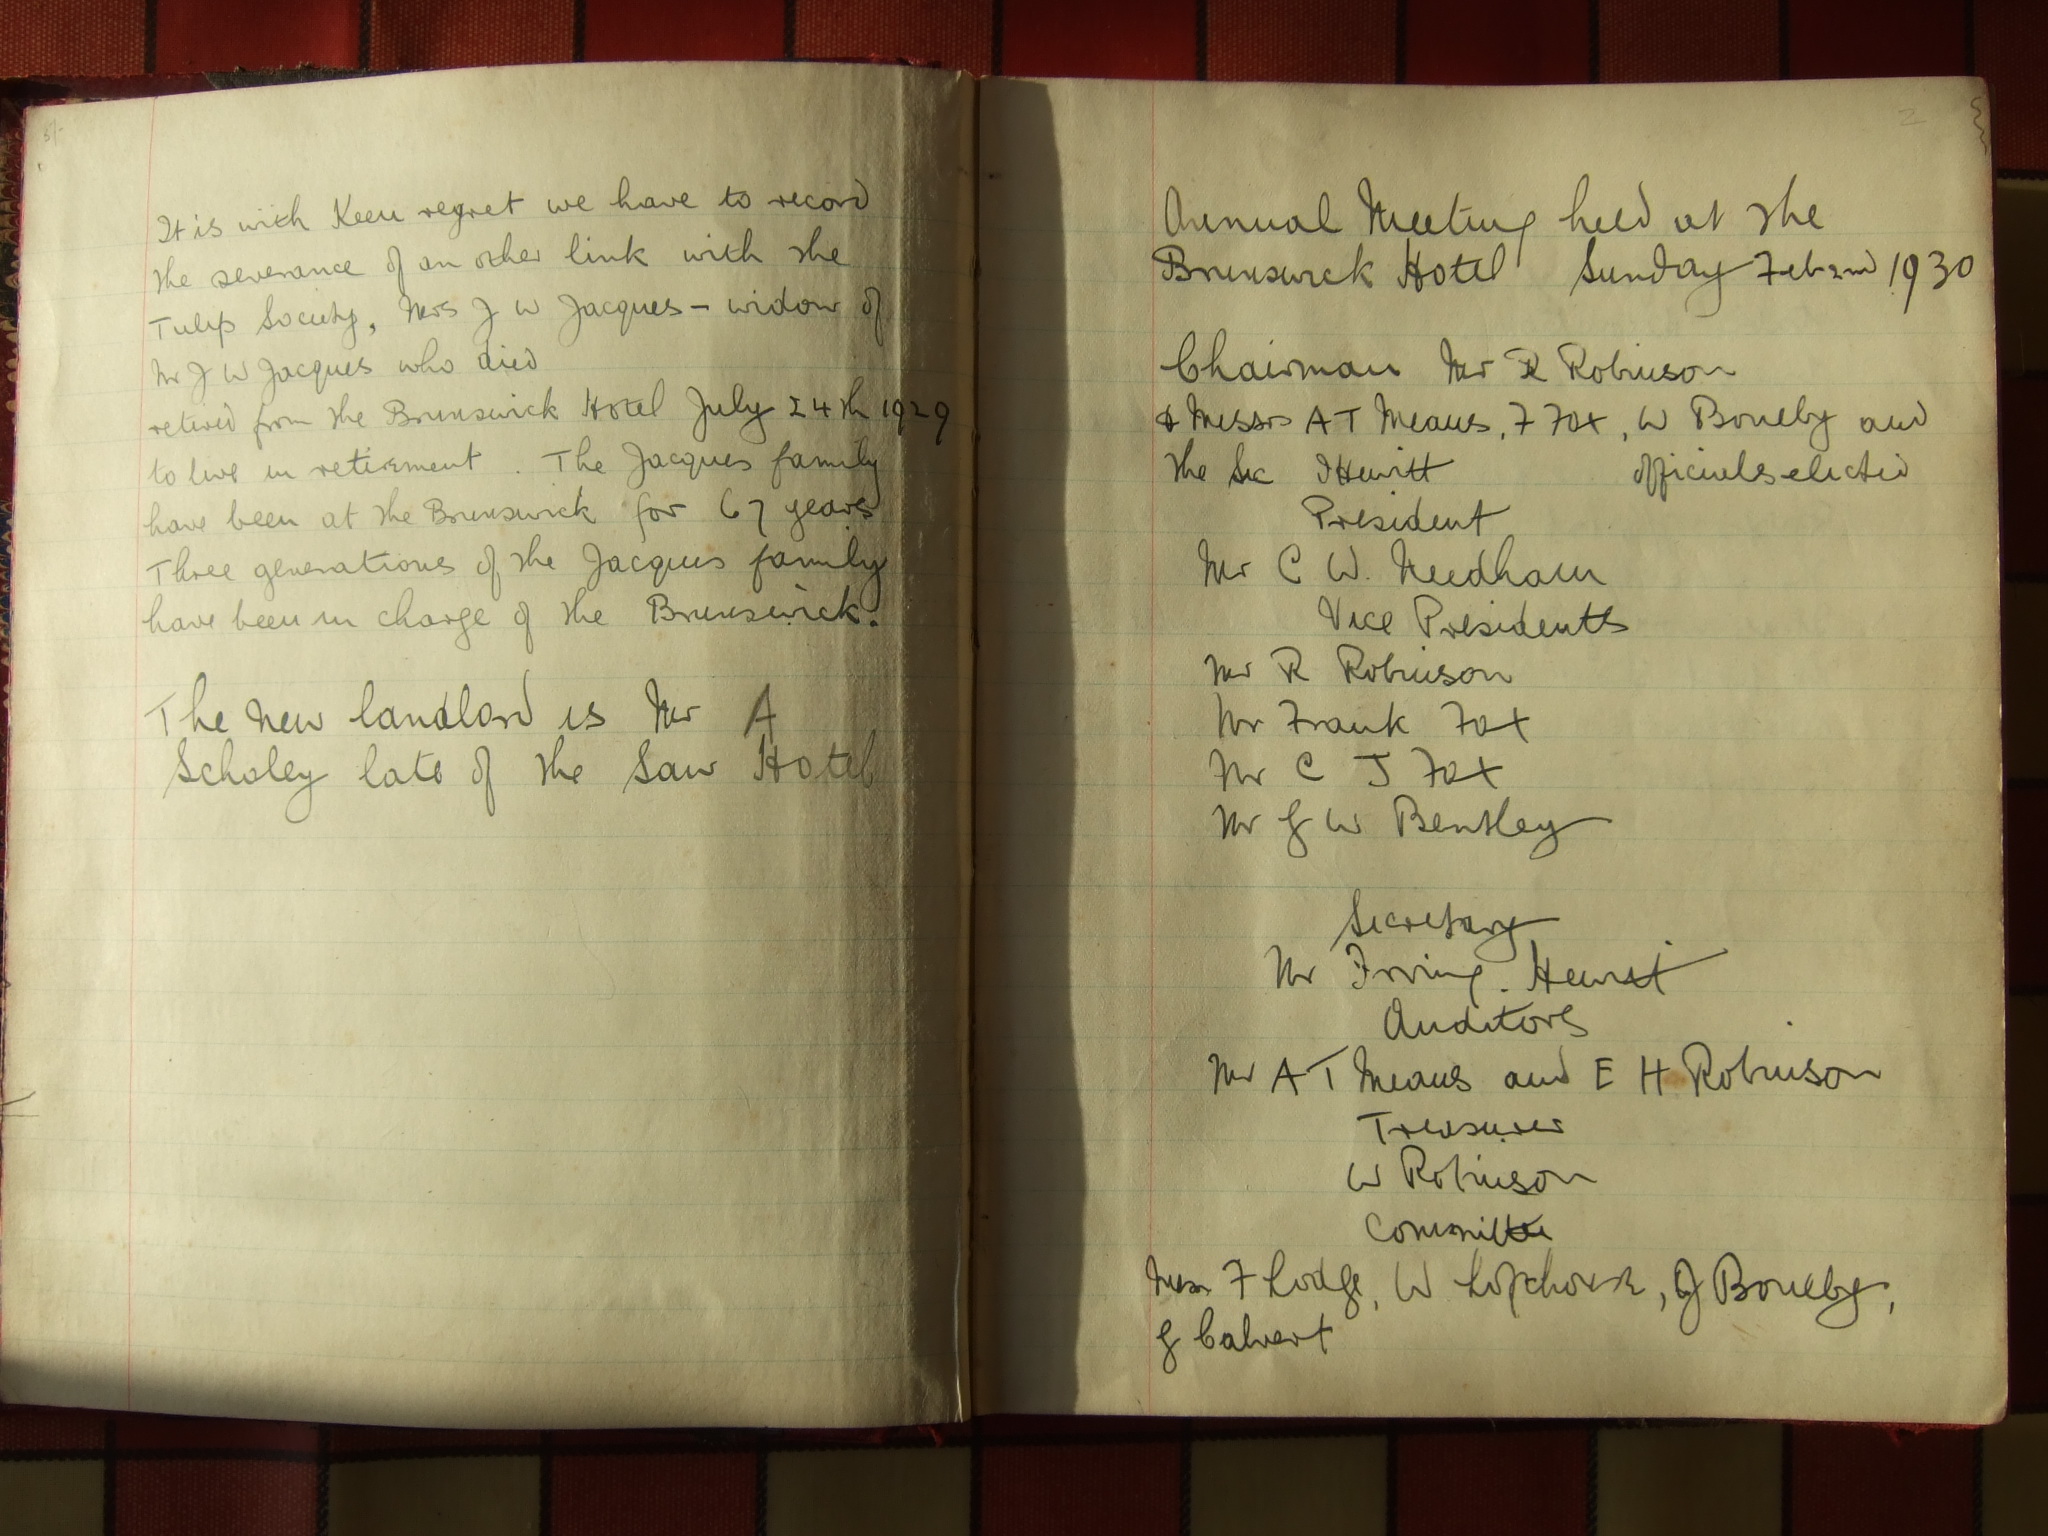 It is with Keen regret we have to record
the severance of an other link with the
Tulip Society, Mrs J W Jacques - widow of
Mr J W Jacques who died
retired from the Brunswick Hotel July 24th 1929
to live in retirement. The Jacques family
have been at the Brunswick for 67 years
Three generations of the Jacques family
have been in charge of the Brunswick.
The New landlord is Mr A
Scholey late of the Saw Hotel
2
Annual Meeting held at the
Brunswick Hotel Sunday Feb 2nd 1930
Chairman Mr R Robinson
& Messrs A T Means, F Fox, W Boneby and
the Sec I Hewitt officials elected
President
Mr C W. Needham
Vice Presidents
Mr R Robinson
Mr Frank Fox
Mr C J Fox
Mr G W Bentley
Secretary
Mr Irving. Hewitt
Auditors
Mr A T Means and E H Robinson
Treasurer
W Robinson
Committee
Messrs F Lodge, W Lofthouse, J Boneby,
G Calvert